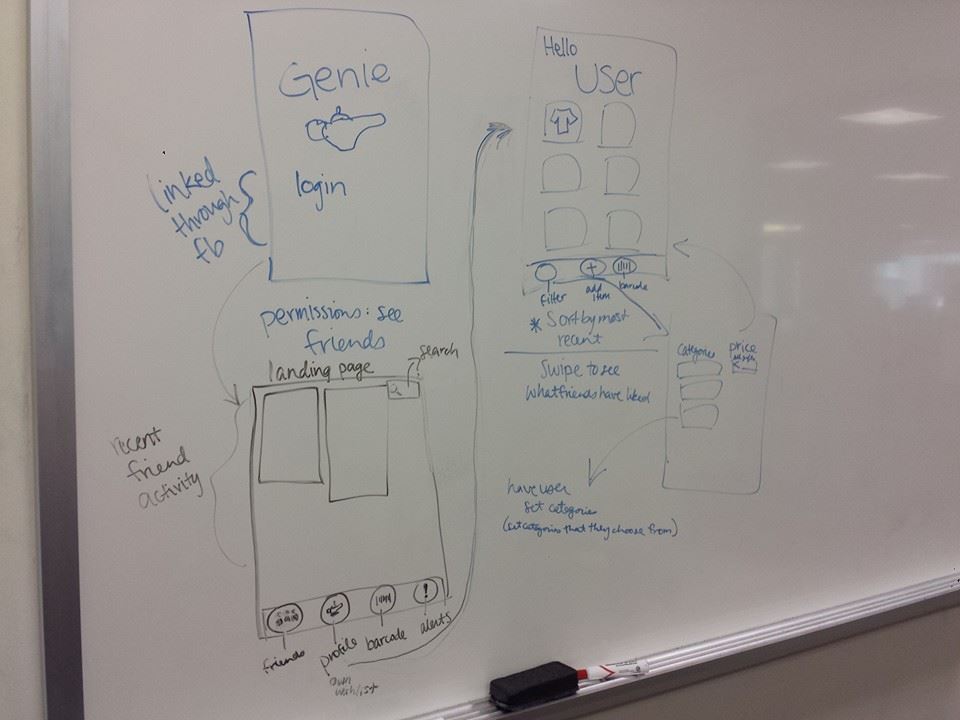 Genie
login
linked
through
fb
permissions: see
friends
landing page
search
recent
friend
activity
friends
profile
own
wishlist
barcode
alerts
Hello
USER
filter
add
item
barcode
* Sort by most
recent
Swipe to see
what friends have liked
Categories
price
have user
set categories
(set categories that they choose from)